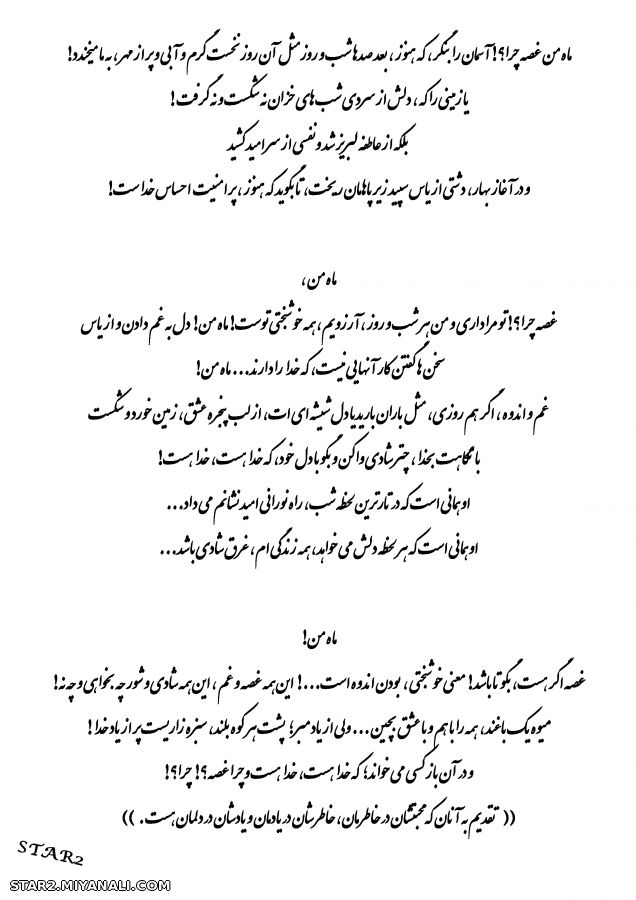 ماه من غصه چرا؟! آسمان را بنگر، که هنوز، بعد صدها شب و روز مثل آن روز نخست گرم و آبی و پر از مهر، به ما میخندد!
یا زمینی را که، دلش از سردی شب های خزان نه شکست و نه گرفت!
بلکه از عاطفه لبریز شد و نفسی از سر امید کشید
و در آغاز بهار، دشتی از یاس سپید زیر پاهامان ریخت، تا بگوید که هنوز، پر امنیت احساس خداست!
ماه من،
غصه چرا؟! تو مرا داری و من هر شب و روز، آرزویم، همه خوشبختی توست! ماه من! دل به غم دادن و از یاس
سخن ها گفتن کار آنهایی نیست، که خدا را دارند... ماه من!
غم و اندوه، اگر هم روزی، مثل باران بارید یا دل شیشه ای ات، از لب پنجره عشق، زمین خورد و شکست
با نگاهت بخدا، چتر شادی وا کن و بگو با دل خود، که خدا هست، خدا هست!
او همانی است که در تارترین لحظه شب، راه نورانی امید نشانم می داد...
او همانی است که هر لحظه دلش می خواهد، همه زندگی ام، غرق شادی باشد...
ماه من!
غصه اگر هست، بگو تا باشد! معنی خوشبختی، بودن اندوه است...! این همه غصه و غم، این همه شادی و شور چه بخواهی و چه نه!
میوه یک باغند، همه را با هم و با عشق بچین... ولی از یاد مبر؛ پشت هر کوه بلند، سبزه زاریست پر از یاد خدا!
و در آن باز کسی می خواند؛ که خدا هست، خدا هست و چرا غصه؟! چرا؟!
(( تقدیم به آنان که محبتشان در خاطرمان، خاطرشان در یادمان و یادشان در دلمان هست. ))
STAR2
STAR2.MIYANALI.COM